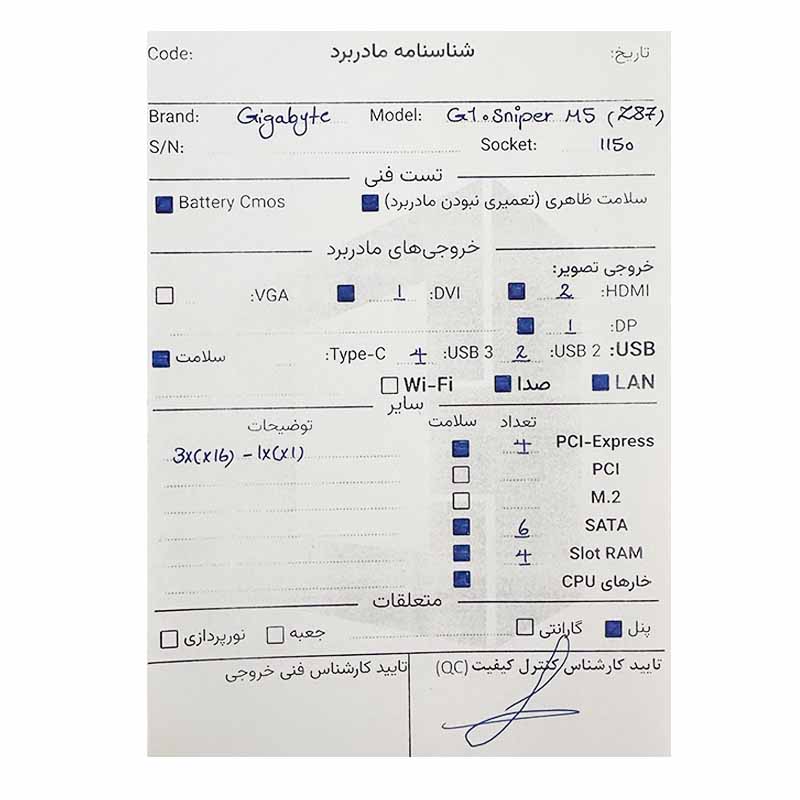 Code: شناسنامه مادربرد تاریخ:
Brand: Gigabyte Model: G1.Sniper M5 (Z87)
S/N: Socket: 1150
تست فنی
سلامت ظاهری (تعمیری نبودن مادربرد) Battery Cmos
خروجی‌های مادربرد
خروجی تصویر:
HDMI: 2 DVI: 1 VGA:
DP: 1
USB: USB 2: 2 USB 3: 4 Type-C: سلامت
LAN صدا Wi-Fi
سایر
تعداد سلامت توضیحات
PCI-Express 4 3x(x16) - 1x(x1)
PCI
M.2
SATA 6
Slot RAM 4
خارهای CPU
متعلقات
پنل گارانتی جعبه نورپردازی
تایید کارشناس کنترل کیفیت (QC) تایید کارشناس فنی خروجی